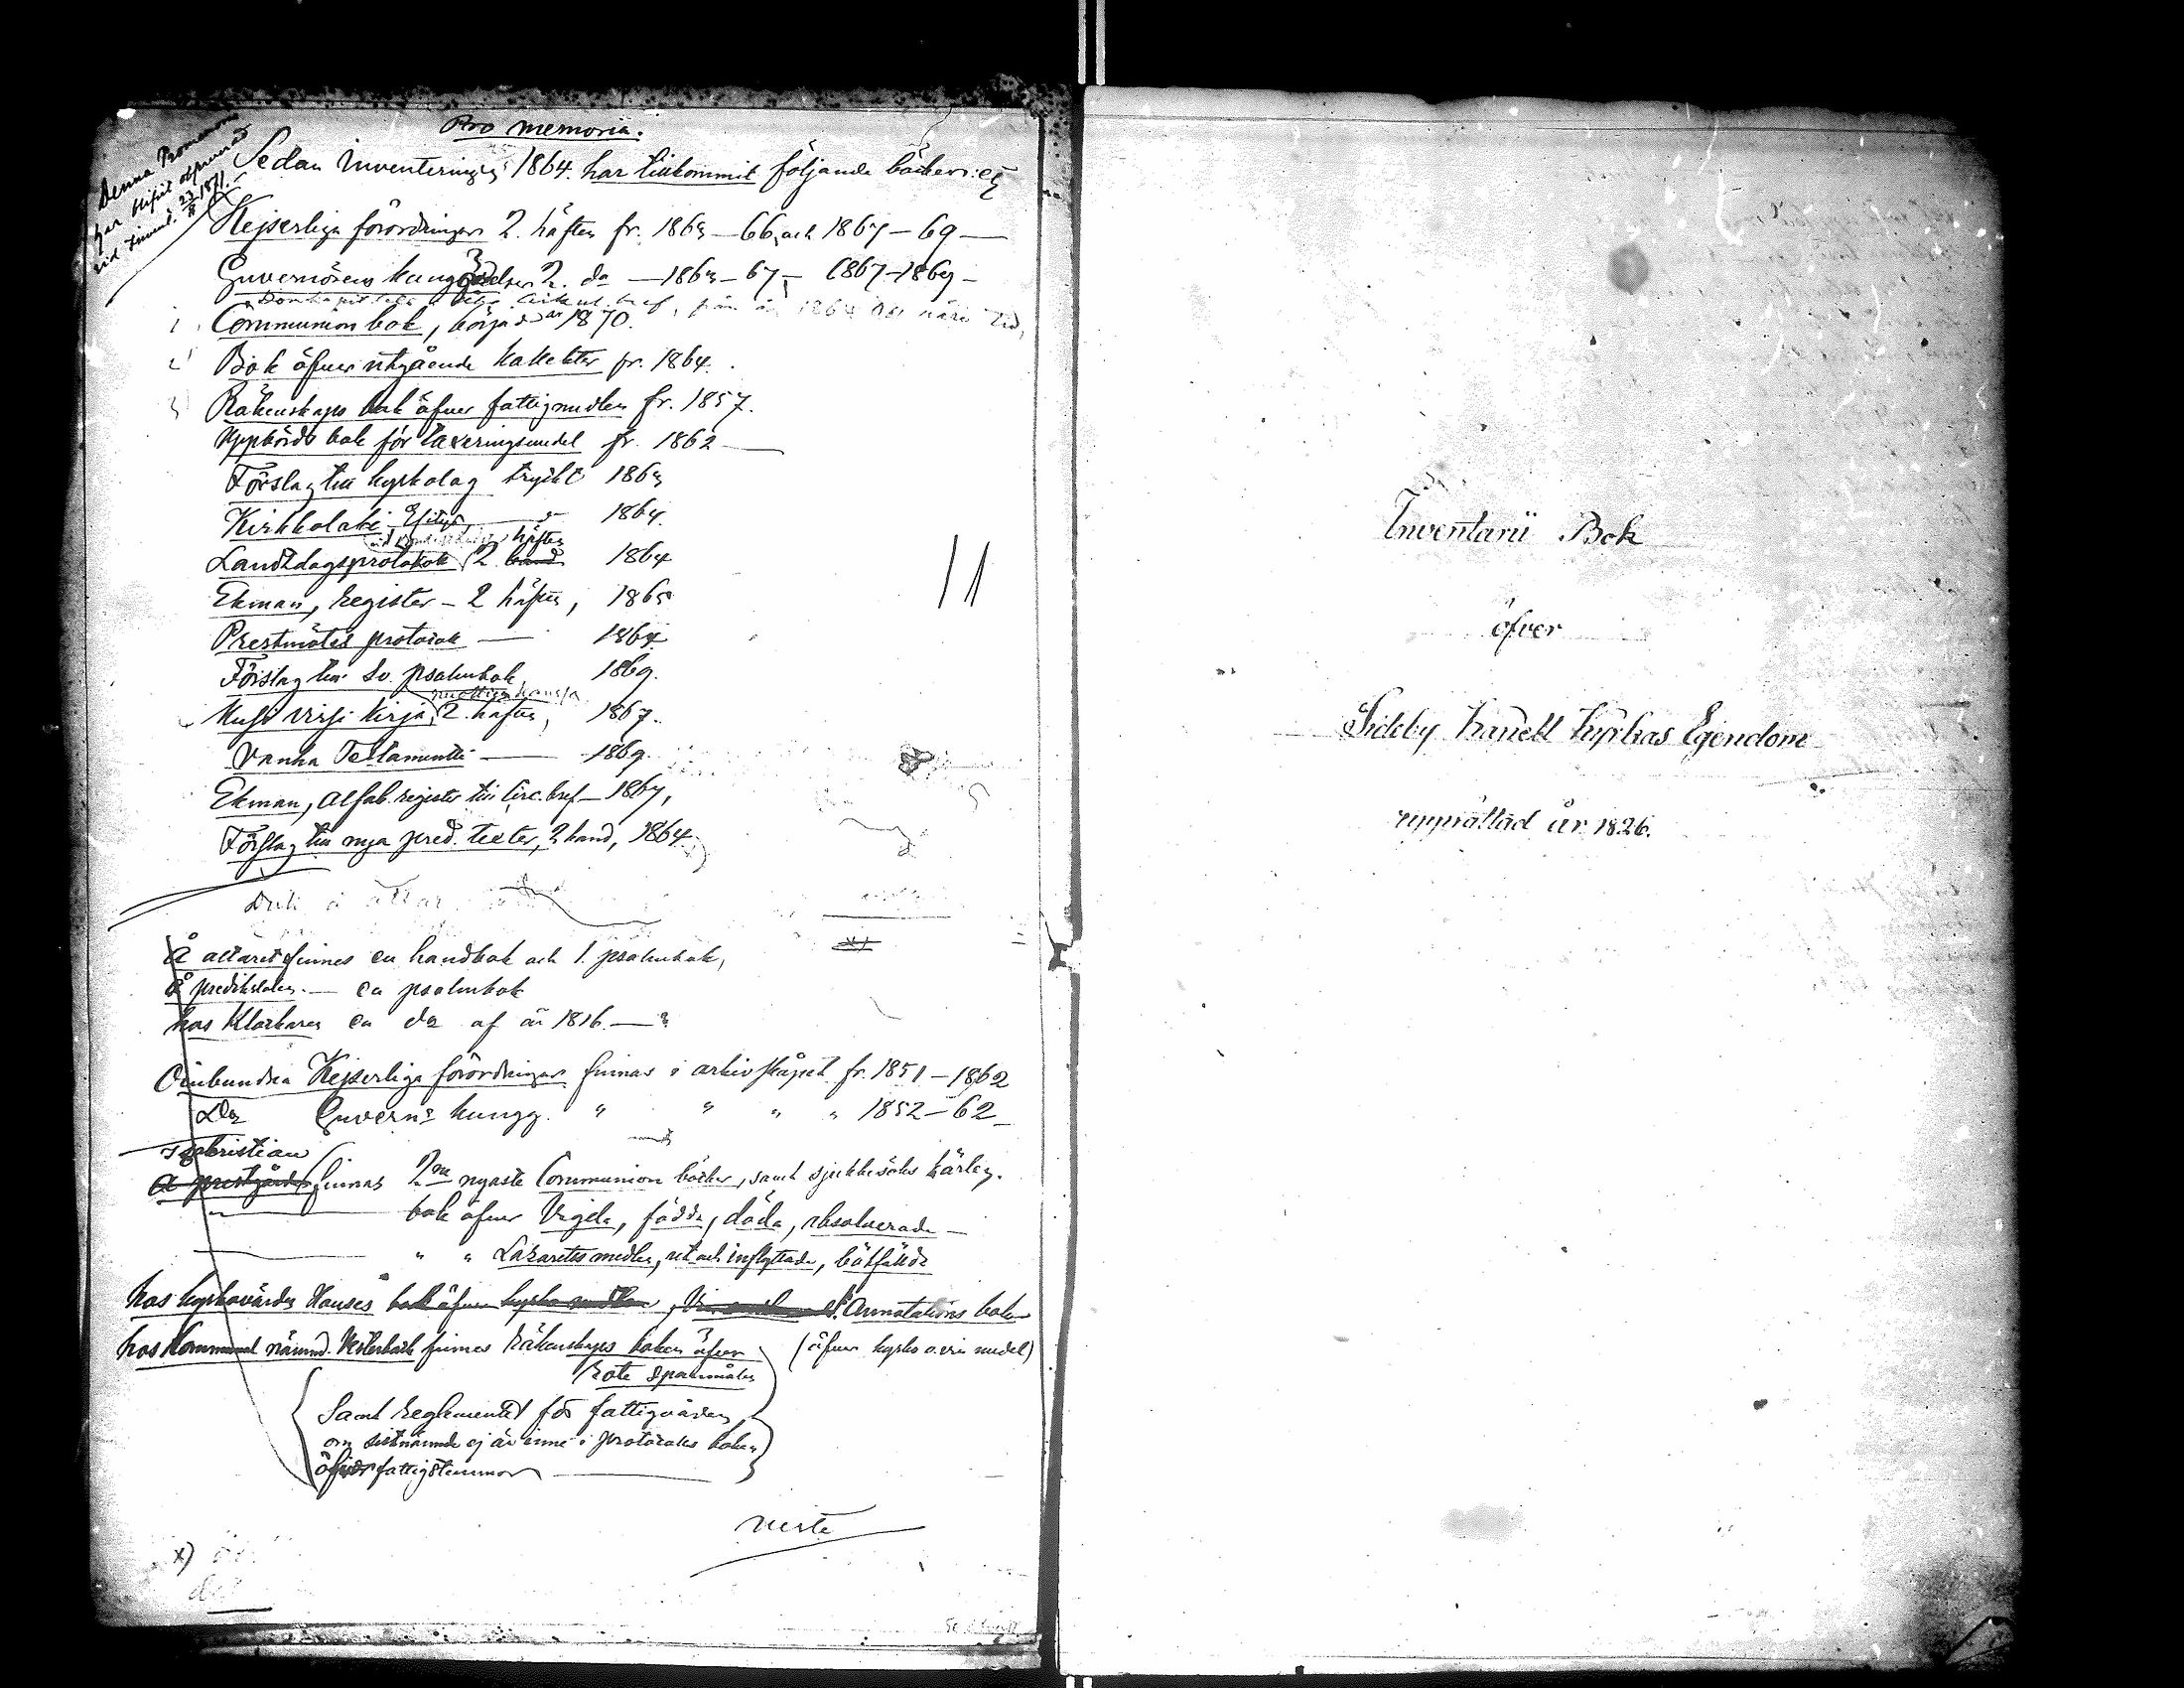 Denna Promemoria
har blifvit
vid 23/8 1871.
Pro memoria.
Sedan Inventeringen 1864 har tillkommit följande böcker:
Kejserliga förordningar 2. häften fr. 1863–66, och 1867–69 —
Guvernörens kungörelser 2. do — 1863–67, 1867–1869 –
1. Communion bok, börjad år 1870.
2. Bok öfver utgående kollekter fr. 1864.
3. Räkenskaps bok öfver fattigmedlen fr. 1857.
Uppbörds bok för taxeringsmedel fr. 1862 —
Förslag till kyrkolag tryckt 1863
Kirkkolaki 1864.
Landtdagsprotokoll 2 band häften 1864
Ekman, register – 2 häften, 1865
Prestmötes protocoll — 1864
Förslag till Sv. psalmbok, 1869.
Uusi Virsi Kirja, 2. häften, 1867.
Vanha Testamentti — 1869.
Ekman, Alfab. register till circ. bref – 1867,
Förslag till nya pred. texter, 2 band, 1864.
Å altaret finnes en handbok och 1. psalmbok,
Å predikstolen. — en psalmbok
hos Klockaren en do af år 1816. —
Oinbundna Kejserliga förordningar finnas i arkivskåpet fr. 1851–1862
Do Guverns kungg. " " " " 1852–62 –
I Sakristian
Å prestgården finnas 2ne nyaste Communion böcker, samt sjukbesöks kärlen.
— bok öfver Vigda, födda, döda, absolverade —
— " " Lazarettsmedlen, ut och inflyttade, bötfälde
hos kyrkovärden Hanses bok öfver kyrko medlen, Annotations bok
hos Kommunal nämnd. Vesterback finnes Räkenskaps boken öfver (öfver kyrko o. vin medel)
Rote spannmålen
Samt Reglementet för fattigvården,
om sistnämnde ej är inne i protocolls boken
öfver fattigstämmor —
verte
x)
Inventarii Bok
öfver
Sideby Kapell Kyrkas Egendom
upprättad år 1826.